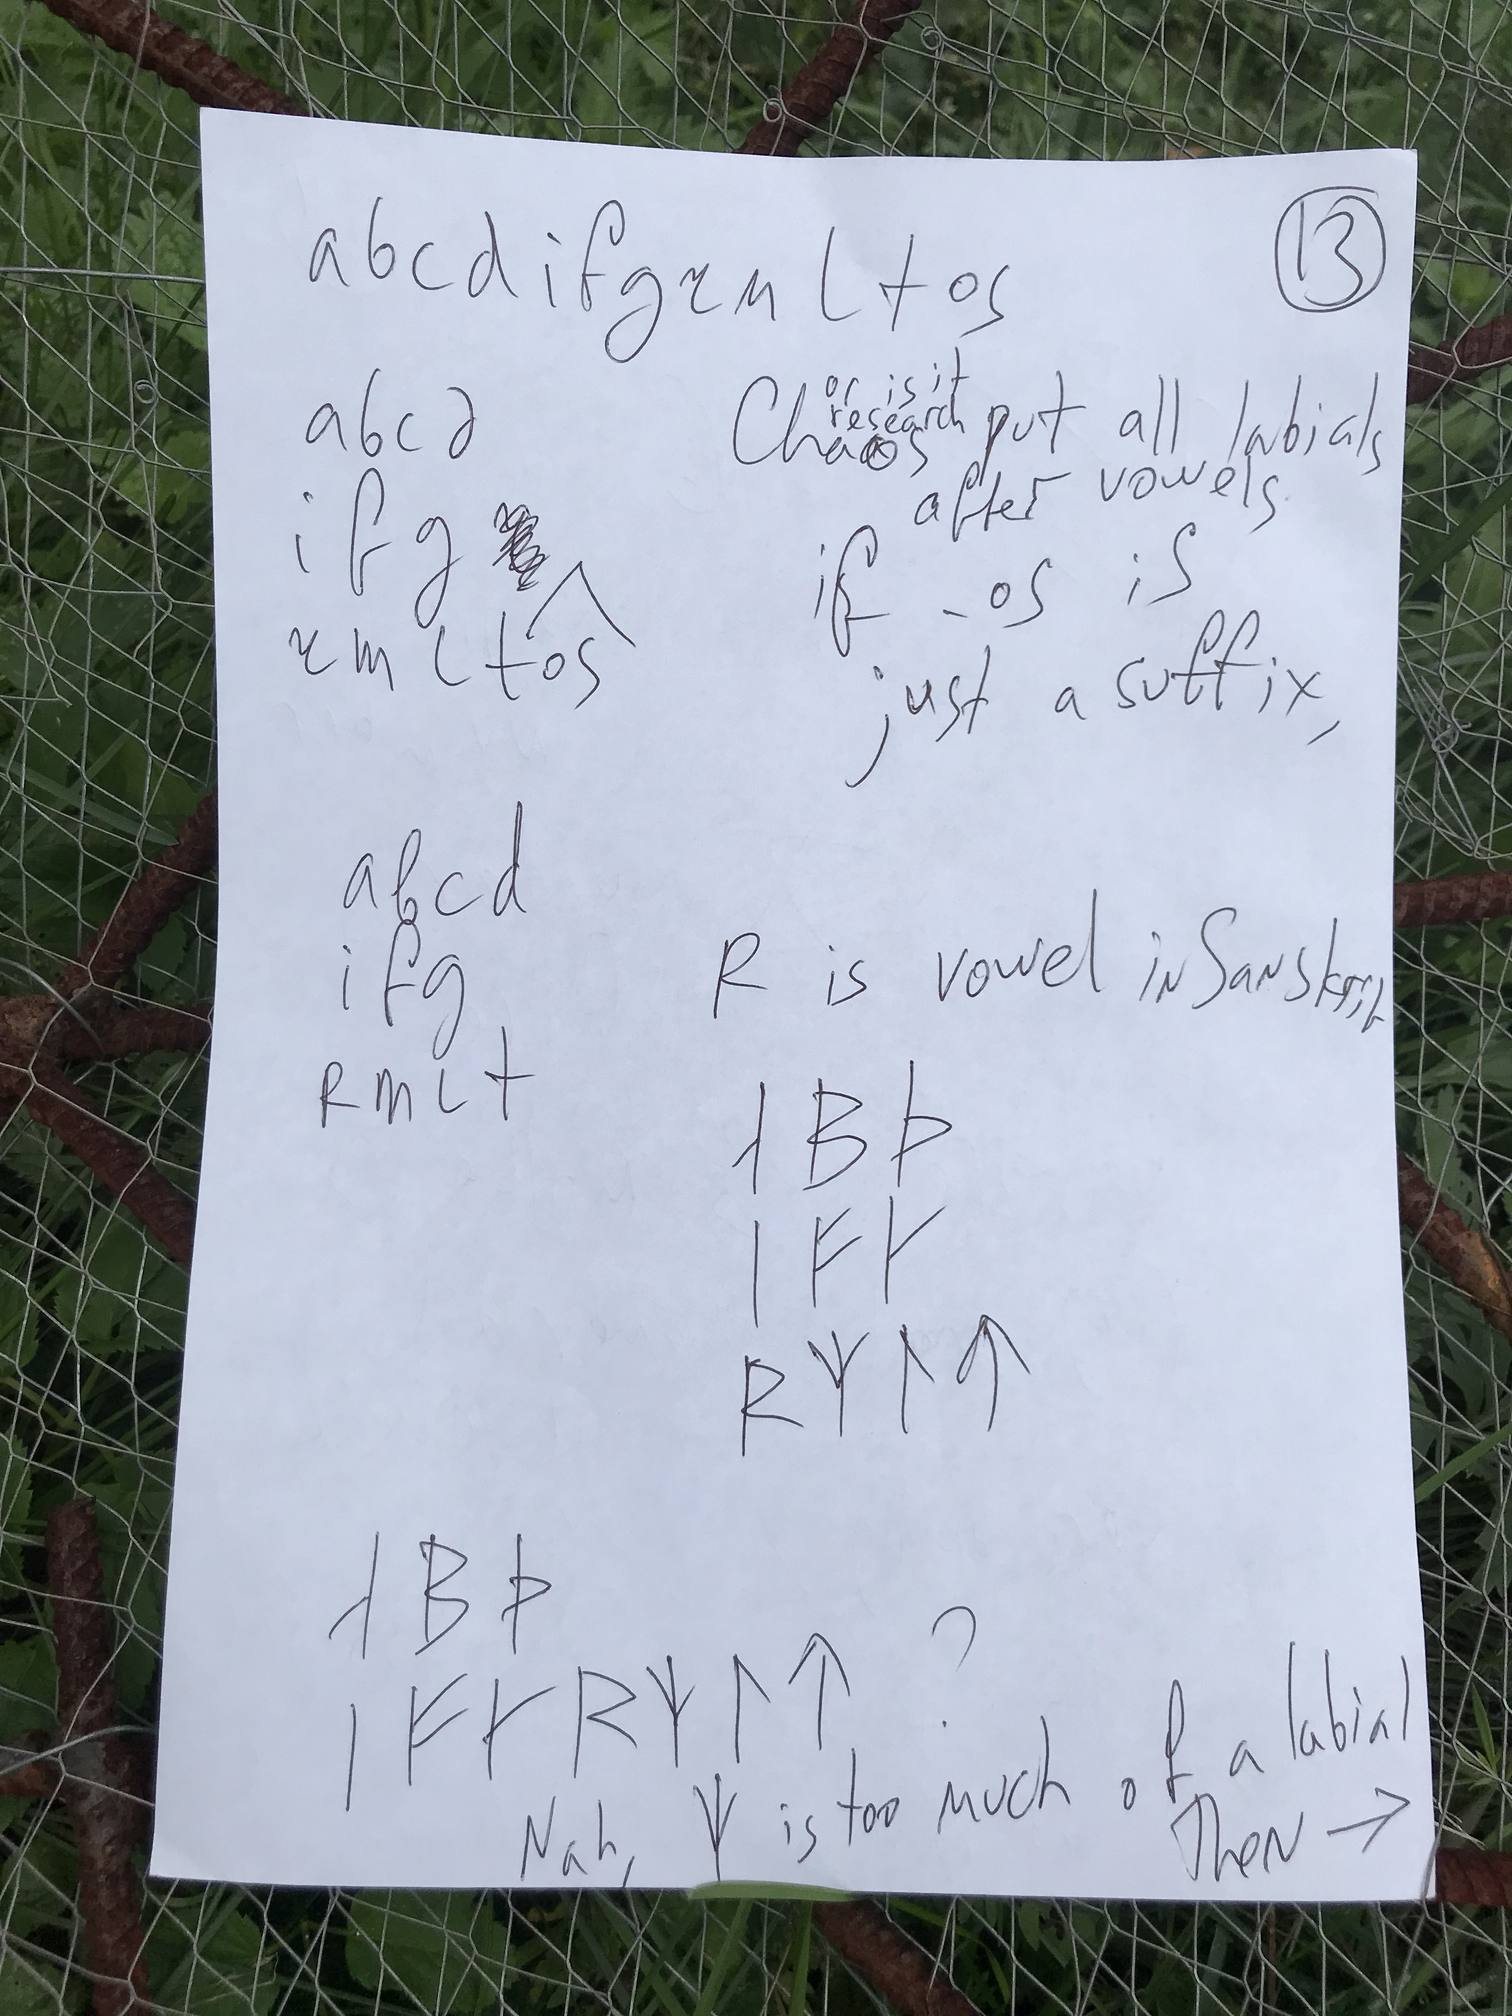 abcdifgrmltos
13
abcd
ifg
rmltos
or is it
research
Chaos put all labials
after vowels
if -os is
just a suffix,
abcd
ifg
RMLT
R is vowel in Sanskrit
ᛆ ᛒ ᚦ
ᛁ ᚠ ᚴ
ᚱ ᛘ ᛚ ᛏ
ᛆ ᛒ ᚦ
ᛁ ᚠ ᚴ ᚱ ᛘ ᛚ ᛏ ?
Nah, ᛘ is too much of a labial
Then →